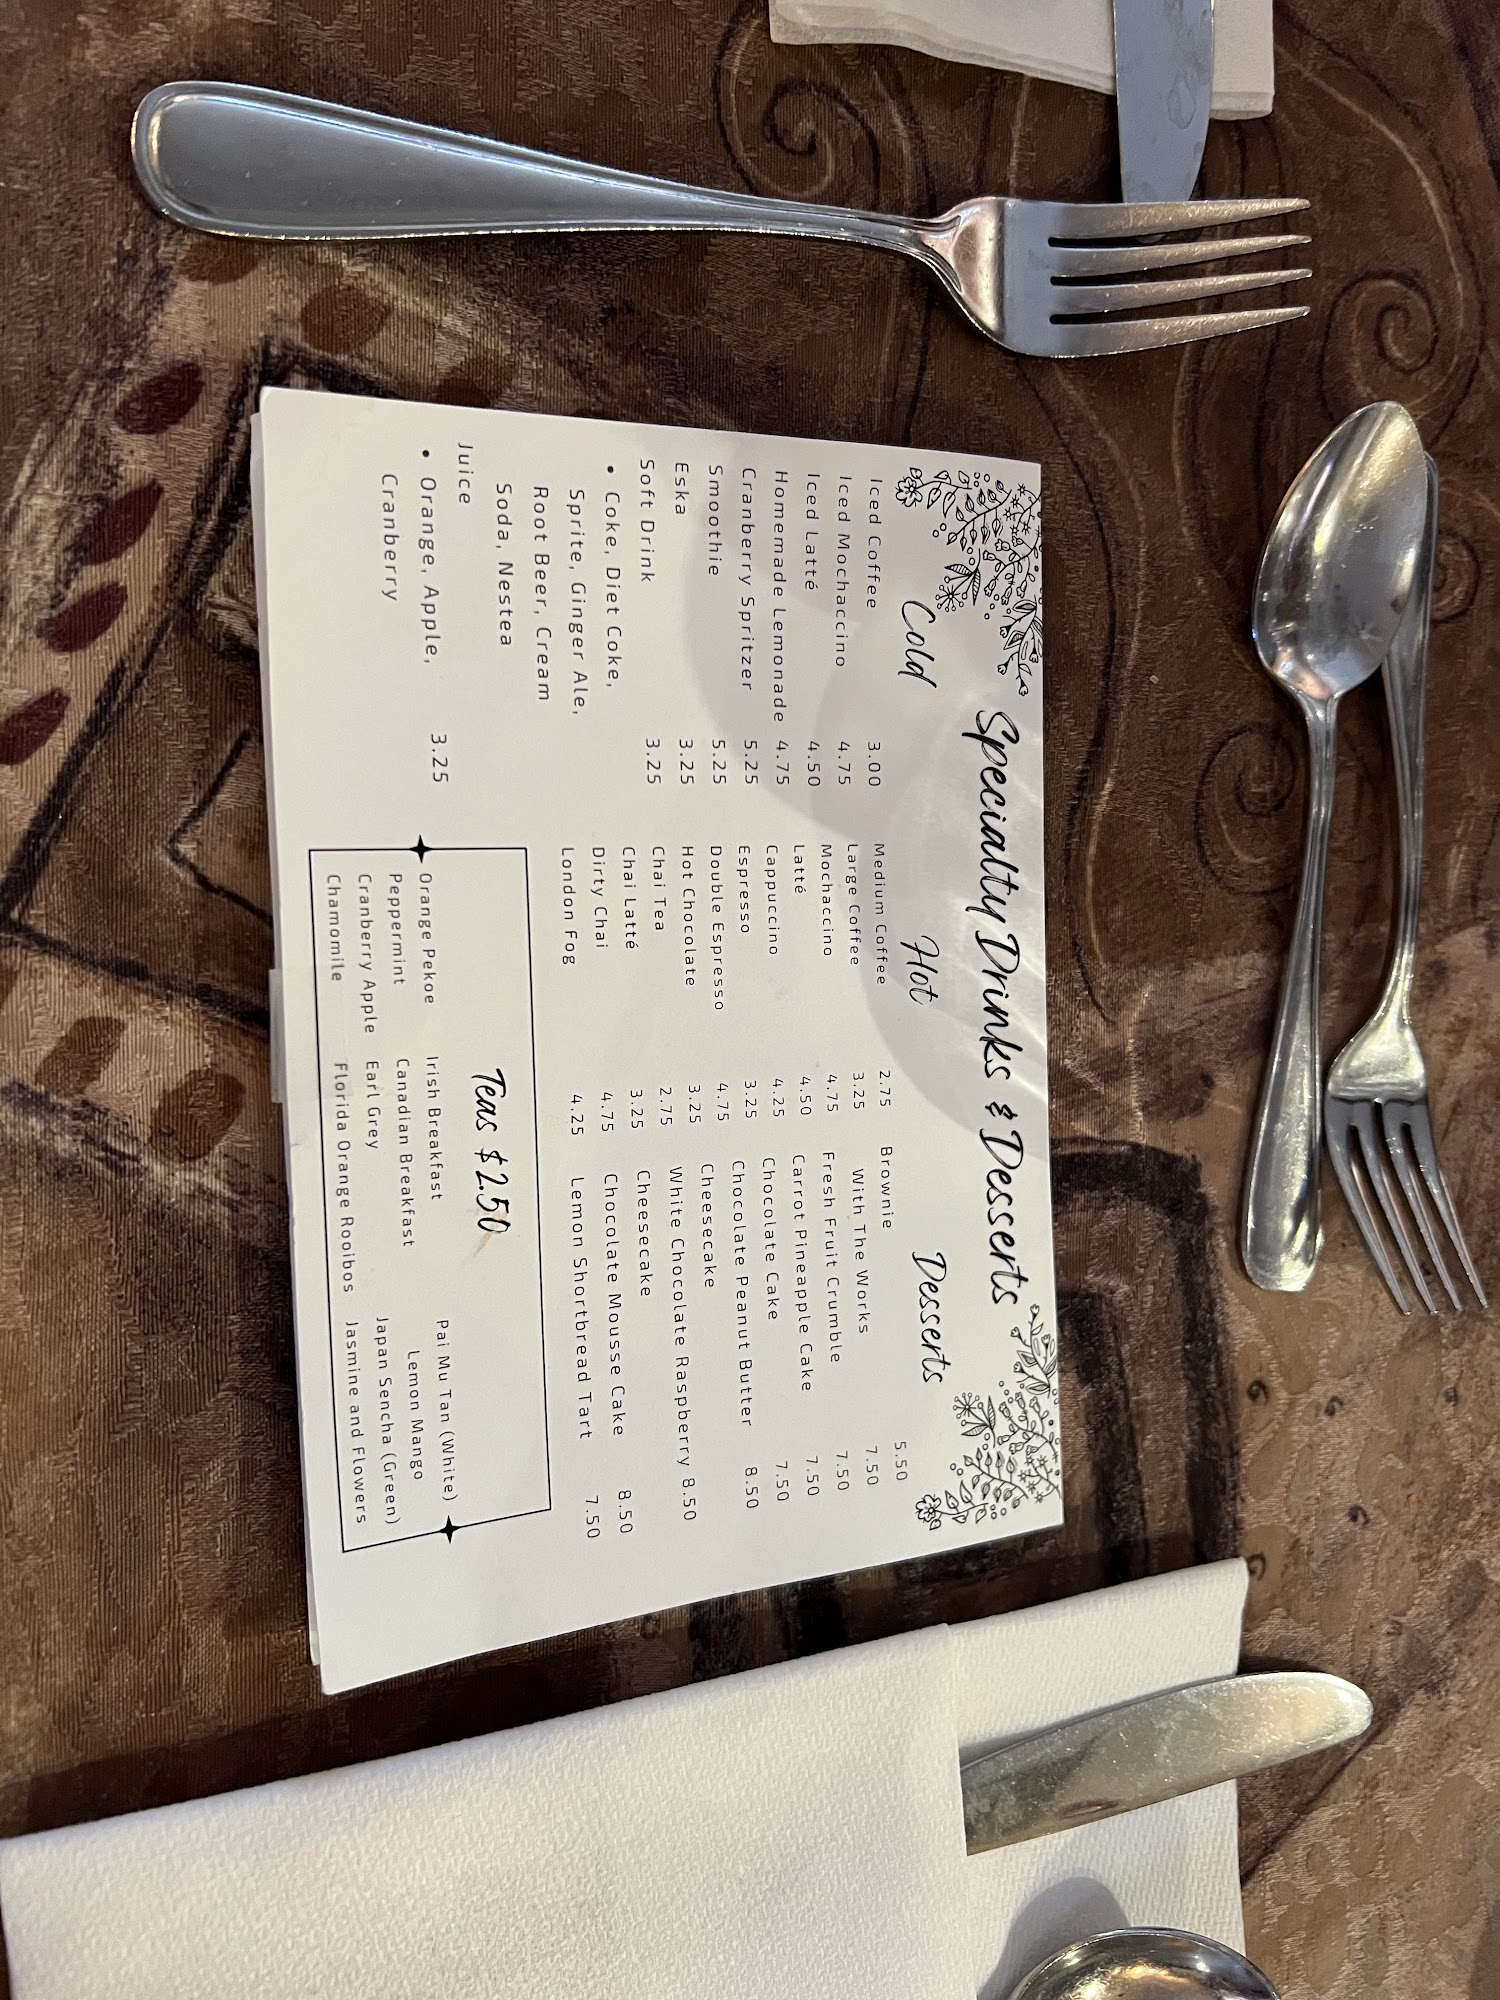 Specialty Drinks & Desserts
Cold
Iced Coffee 3.00
Iced Mochaccino 4.75
Iced Latté 4.50
Homemade Lemonade 4.75
Cranberry Spritzer 5.25
Smoothie 5.25
Eska 3.25
Soft Drink 3.25
• Coke, Diet Coke,
Sprite, Ginger Ale,
Root Beer, Cream
Soda, Nestea
Juice 3.25
• Orange, Apple,
Cranberry
Hot
Medium Coffee 2.75
Large Coffee 3.25
Mochaccino 4.75
Latté 4.50
Cappuccino 4.25
Espresso 3.25
Double Espresso 4.75
Hot Chocolate 3.25
Chai Tea 2.75
Chai Latté 3.25
Dirty Chai 4.75
London Fog 4.25
Desserts
Brownie 5.50
With The Works 7.50
Fresh Fruit Crumble 7.50
Carrot Pineapple Cake 7.50
Chocolate Cake 7.50
Chocolate Peanut Butter 8.50
Cheesecake
White Chocolate Raspberry 8.50
Cheesecake
Chocolate Mousse Cake 8.50
Lemon Shortbread Tart 7.50
Teas $2.50
Orange Pekoe
Peppermint
Cranberry Apple
Chamomile
Irish Breakfast
Canadian Breakfast
Earl Grey
Florida Orange Rooibos
Pai Mu Tan (White)
Lemon Mango
Japan Sencha (Green)
Jasmine and Flowers